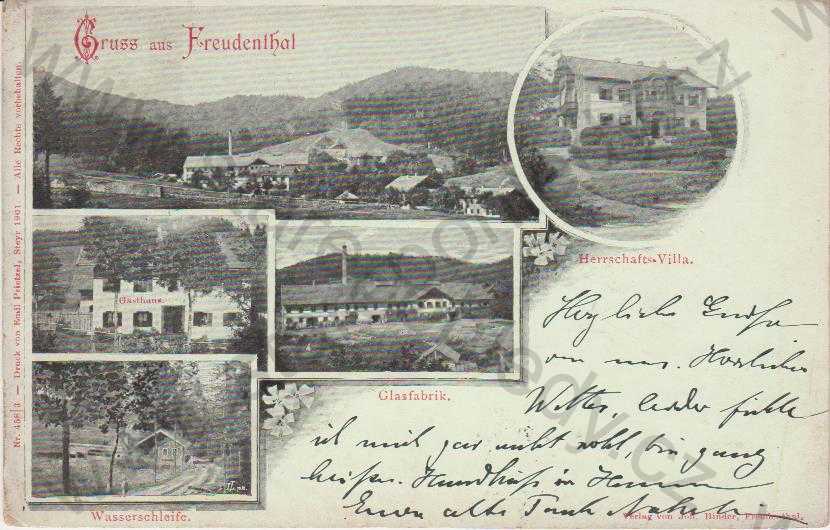 Gruss aus Freudenthal
Herrschafts-Villa.
Gasthaus.
Glasfabrik.
Wasserschleife.
Nr. 458/3 — Druck von Emil Prietzel, Steyr 1901 — Alle Rechte vorbehalten.
Herzliche Grüße
von uns. Herrliches
Wetter, leider fühle
ich mich gar nicht wohl, bin ganz
heiser. Handküsse
Eure alte Tante
Verlag von Joh. Binder, Freudenthal.